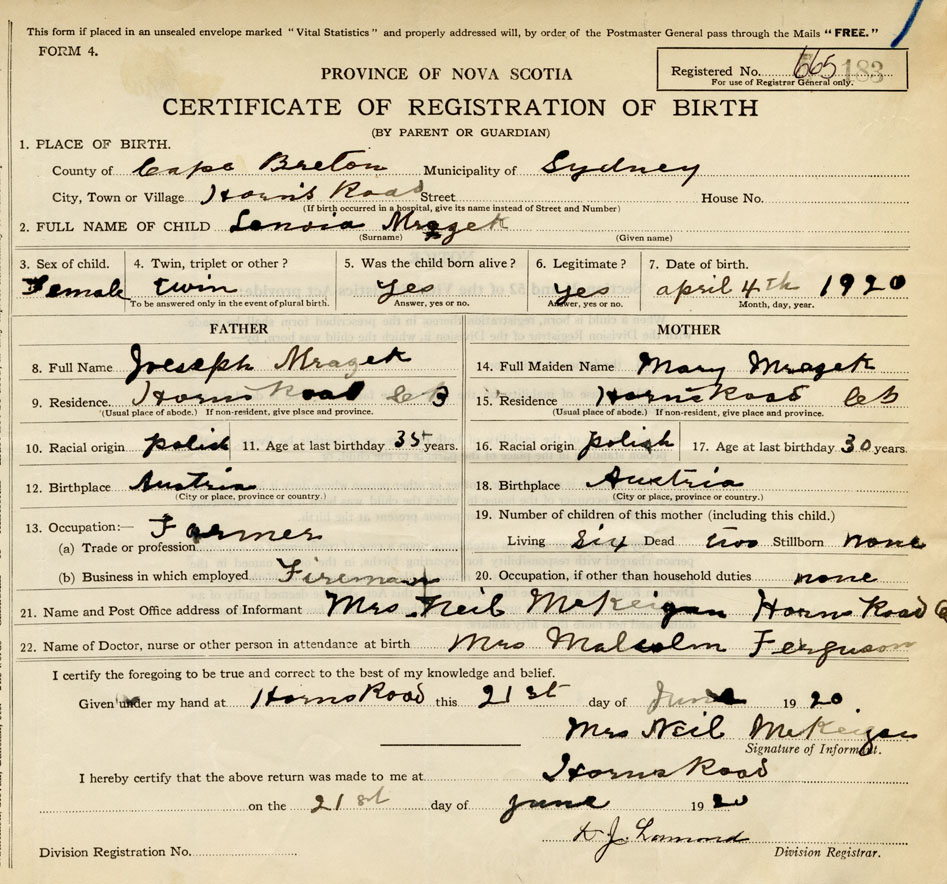 This form if placed in an unsealed envelope marked "Vital Statistics" and properly addressed will, by order of the Postmaster General pass through the Mails "FREE."
FORM 4.
Registered No. 665 183
For use of Registrar General only.
PROVINCE OF NOVA SCOTIA
CERTIFICATE OF REGISTRATION OF BIRTH
(BY PARENT OR GUARDIAN)
1. PLACE OF BIRTH.
County of Cape Breton Municipality of Sydney
City, Town or Village Horns Road Street House No.
(If birth occurred in a hospital, give its name instead of Street and Number)
2. FULL NAME OF CHILD Lenoia Mrazek
(Surname) (Given name)
3. Sex of child. 4. Twin, triplet or other? 5. Was the child born alive? 6. Legitimate? 7. Date of birth.
Female twin yes yes april 4th 1920
To be answered only in the event of plural birth. Answer, yes or no. Answer, yes or no. Month, day, year.
FATHER MOTHER
8. Full Name Joeseph Mrazek 14. Full Maiden Name Mary Mrazek
9. Residence. Horns Road C B 15. Residence Horns Road C B
(Usual place of abode.) If non-resident, give place and province. (Usual place of abode.) If non-resident, give place and province.
10. Racial origin polish 11. Age at last birthday 35 years. 16. Racial origin polish 17. Age at last birthday 30 years.
12. Birthplace Austria 18. Birthplace Austria
(City or place, province or country.) (City or place, province or country.)
13. Occupation:— Farmer 19. Number of children of this mother (including this child.)
(a) Trade or profession Living six Dead two Stillborn none
(b) Business in which employed Fireman 20. Occupation, if other than household duties none
21. Name and Post Office address of Informant Mrs. Neil McKeigan Horns Road C
22. Name of Doctor, nurse or other person in attendance at birth Mrs Malcolm Ferguson
I certify the foregoing to be true and correct to the best of my knowledge and belief.
Given under my hand at Horns Road this 21st day of June 1920
Mrs Neil McKeigan
Signature of Informant.
I hereby certify that the above return was made to me at Horns Road
on the 21st day of june 1920
D J. Lamond
Division Registration No. Division Registrar.